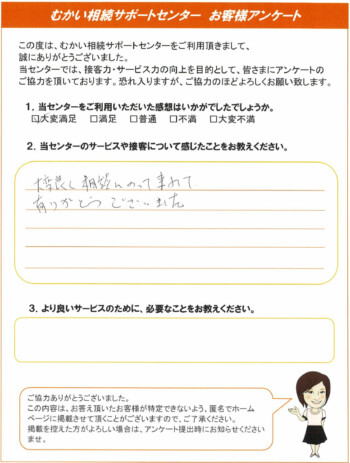 むかい相続サポートセンター お客様アンケート
この度は、むかい相続サポートセンターをご利用頂きまして、
誠にありがとうございました。
当センターでは、接客力・サービス力の向上を目的として、皆さまにアンケートの
ご協力を頂いております。恐れ入りますが、ご協力のほどよろしくお願い致します。
1. 当センターをご利用いただいた感想はいかがでしたでしょうか。
☑大変満足 □満足 □普通 □不満 □大変不満
2. 当センターのサービスや接客について感じたことをお教えください。
相談にのって来れて
ありがとうございました
3. より良いサービスのために、必要なことをお教えください。
ご協力ありがとうございました。
この内容は、お答え頂いたお客様が特定できないよう、匿名でホーム
ページに掲載させて頂くことがございますので、ご了承ください。
掲載を控えた方がよろしい場合は、アンケート提出時にお知らせくださいませ。